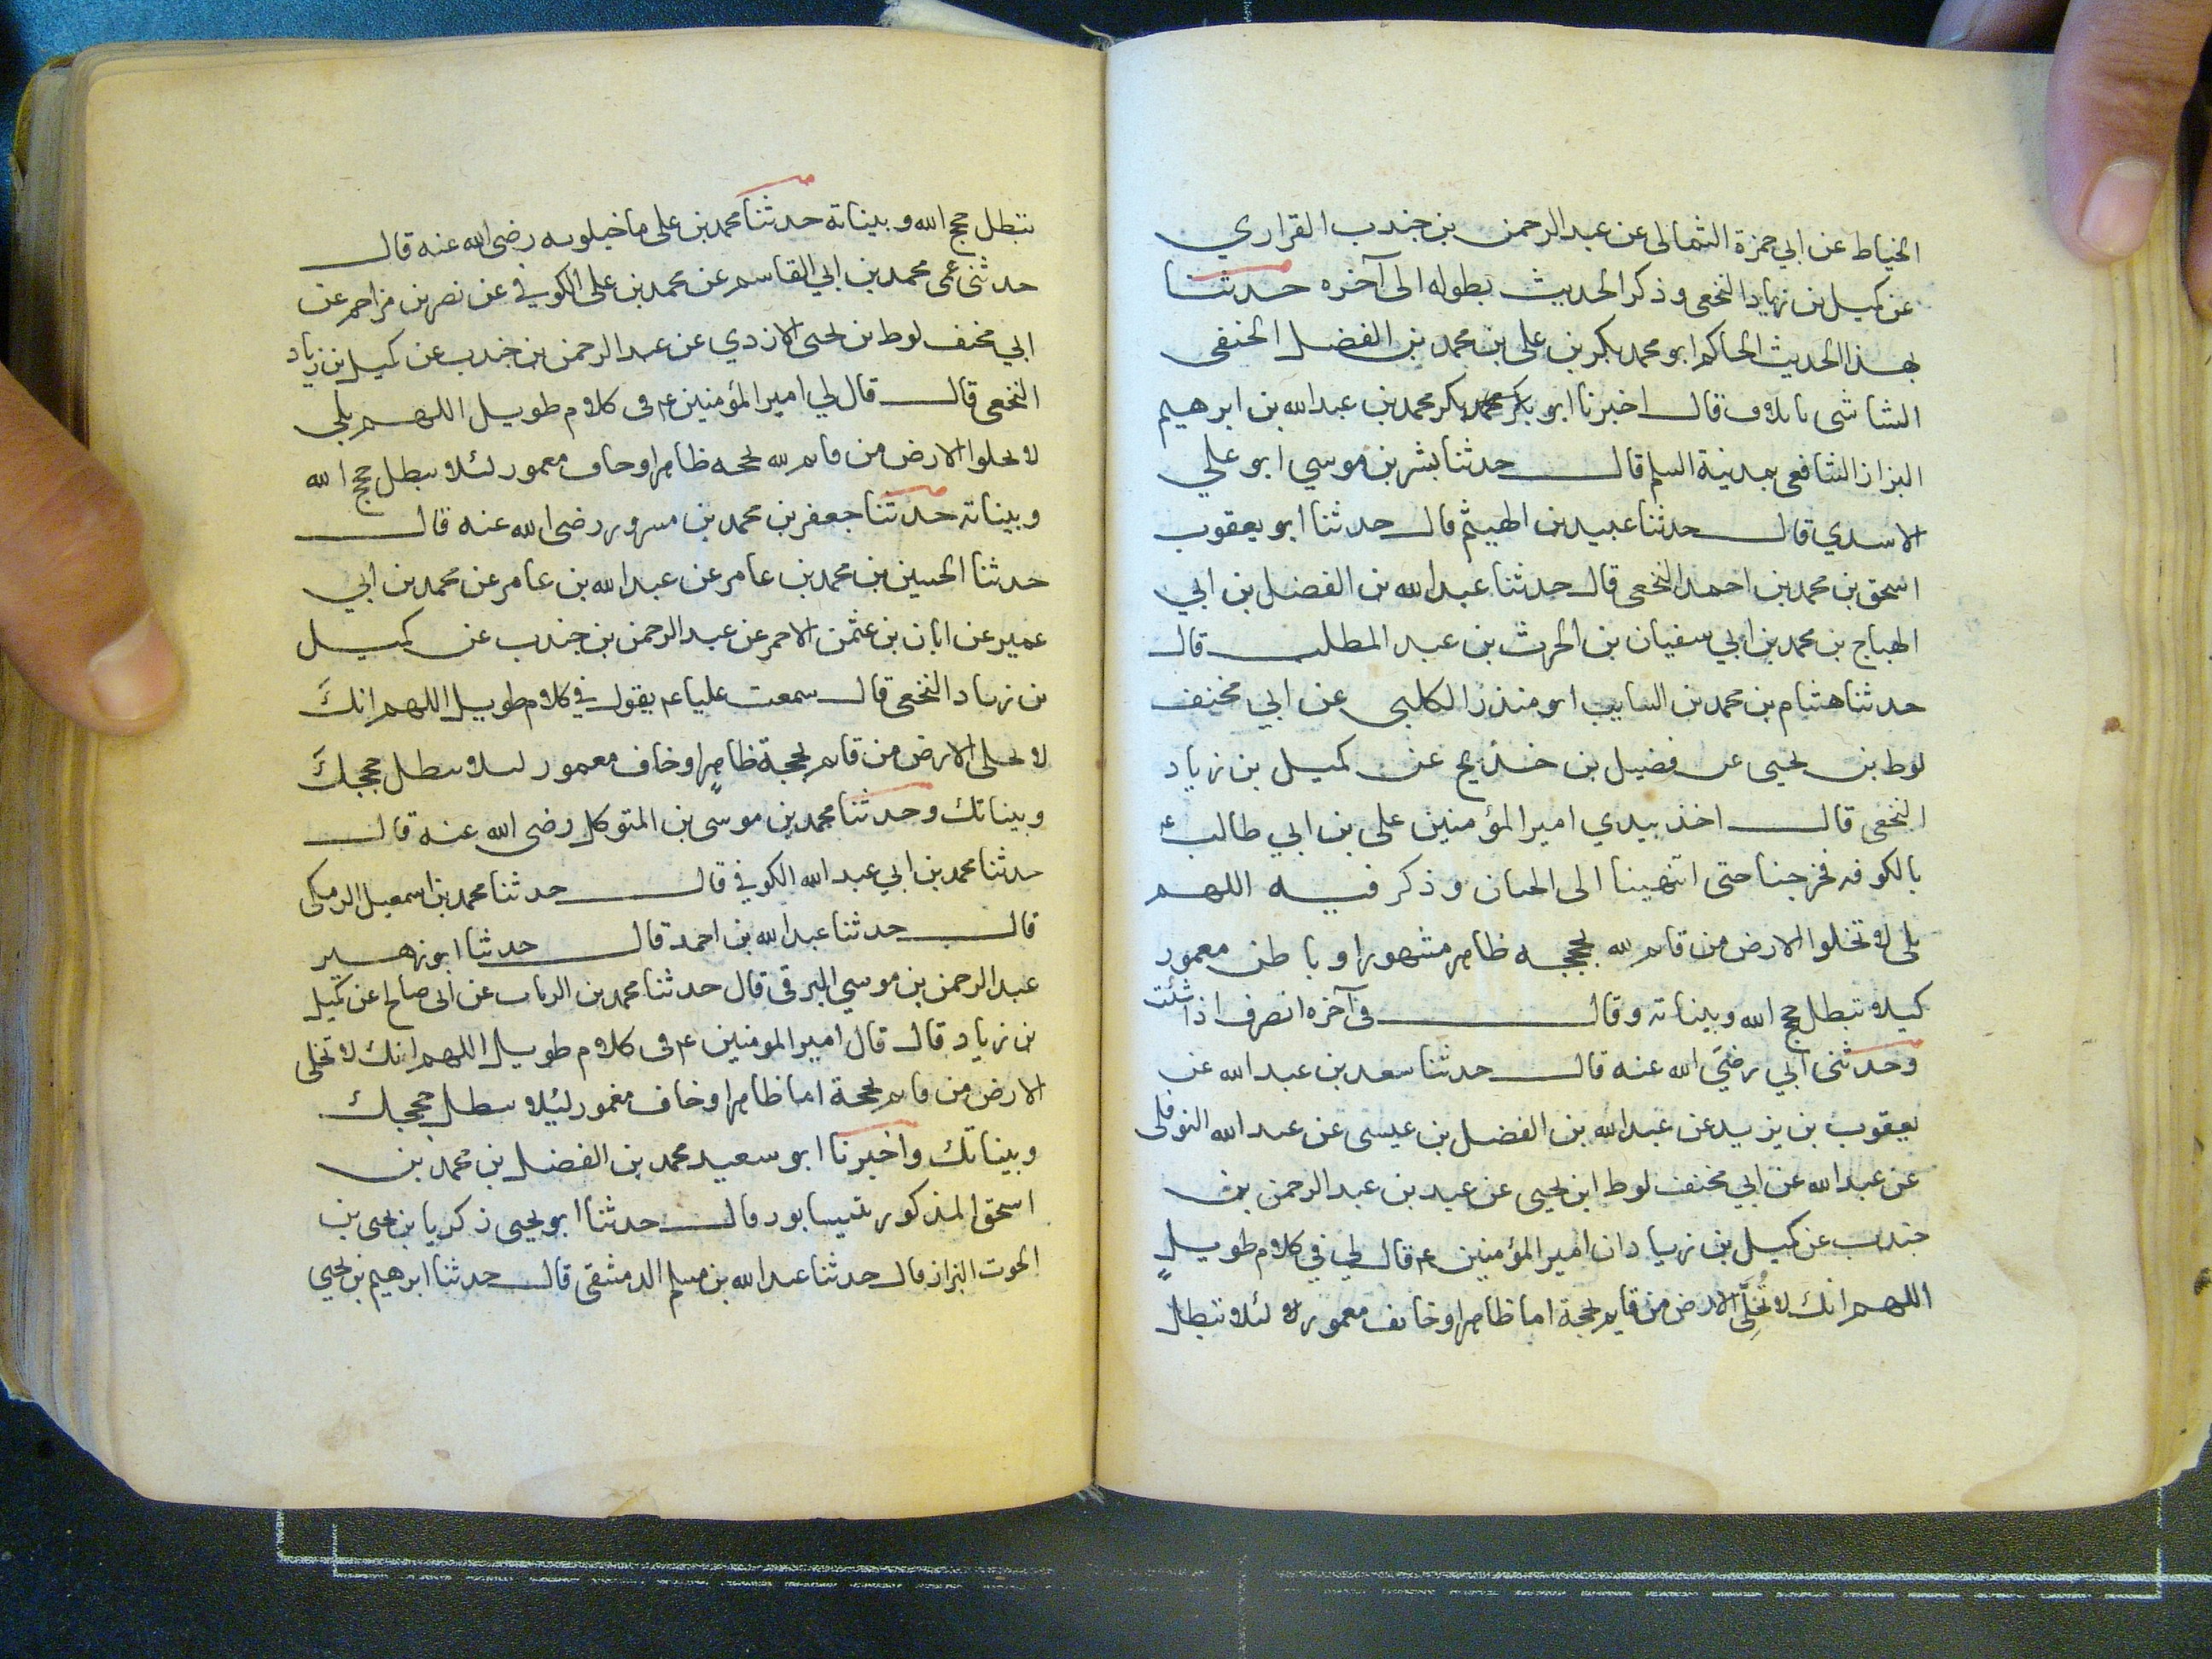 الخياط عن ابي حمزة الثمالى عن عبد الرحمن بن جندب القراري
عن كميل بن زياد النخعى وذكر الحديث بطوله الى آخره حدثنا
بهذا الحديث الحاكم ابو محمد بكر بن على بن محمد بن الفضل الحنفى
الشاشى بايلاق قال اخبرنا ابو بكر محمد بن عبد الله بن ابرهيم
البزاز الشافعى بمدينة السلم قال حدثنا بشر بن موسي ابو علي
الاسدي قال حدثنا عبيد بن الهيثم قال حدثنا ابو يعقوب
اسحق بن محمد بن احمد النخعى قال حدثنا عبد الله بن الفضل بن ابي
الهياج بن محمد بن ابي سفيان بن الحرث بن عبد المطلب قال
حدثنا هشام بن محمد بن السايب ابو منذر الكلبى عن ابي مخنف
لوط بن يحيى عن فضيل بن خديج عن كميل بن زياد
النخعى قال اخذ بيدي امير المؤمنين على بن ابي طالب ع
بالكوفه فخرجنا حتى انتهينا الى الجبان وذكر فيه اللهم
بلى لا تخلوا الارض من قايم لله بحججه ظاهر مشهورا وباطن معمور
كيلا تبطل حجج الله وبيناته وقال فى آخره انصرف اذا شئت
وحدثنى ابي رضي الله عنه قال حدثنا سعد بن عبد الله عن
يعقوب بن يزيد عن عبد الله بن الفضل بن عيسى عن عبد الله النوفلى
عن عبد الله عن ابي مخنف لوط ابن يحيى عن عبد بن عبد الرحمن بن
جندب عن كميل بن زياد ان امير المؤمنين ع قال لي في كلام طويلٍ
اللهم انك لا تُخلِّى الارض من قايم بحجة اما ظاهرا وخايف معمورا لئلا تبطل
تبطل حجج الله وبيناته حدثنا محمد بن على ماخيلويه رضى الله عنه قال
حدثنى عمى محمد بن ابي القاسم عن محمد بن على الكوفي عن نصر بن مزاحم عن
ابي مخنف لوط بن يحيى الازدي عن عبد الرحمن بن جندب عن كميل بن زياد
النخعى قال قال لي امير المؤمنين ع فى كلام طويل اللهم بلى
لا تخلوا الارض من قايم لله بحجه ظاهرا وخاف معمور لئلا تبطل حجج الله
وبيناته حدثنا جعفر بن محمد بن مسرور رضى الله عنه قال
حدثنا الحسين بن محمد بن عامر عن عبد الله بن عامر عن محمد بن ابي
عمير عن ابان بن عثمن الاحمر عن عبد الرحمن بن جندب عن كميل
بن زياد النخعى قال سمعت عليا ع يقول في كلام طويل اللهم انكَ
لا تخلى الارض من قايم بحجة ظاهرٍ اوخاف معمور لئلا تبطل حججكَ
وبيناتك وحدثنا محمد بن موسى بن المتوكل رضى الله عنه قال
حدثنا محمد بن ابي عبد الله الكوفي قال حدثنا محمد بن اسمعيل البرمكى
قال حدثنا عبد الله بن احمد قال حدثنا ابو زهير
عبد الرحمن بن موسي البرقى قال حدثنا محمد بن الزيات عن ابى صالح عن كميل
بن زياد قال قال امير المومنين ع فى كلام طويل اللهم انك لا تخلى
الارض من قايم بحجة اما ظاهرا وخاف مغمور لئلا تبطل حججك
وبيناتك واخبرنا ابو سعيد محمد بن الفضل بن محمد بن
اسحق المذكور بنيسابور قال حدثنا ابو يحيى زكريا بن يحيى بن
الحوت البزاز قال حدثنا عبد الله بن مسلم الدمشقى قال حدثنا ابرهيم بن يحيي